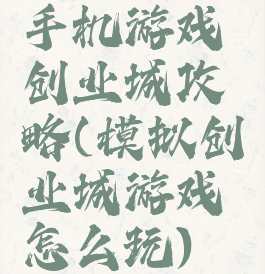 手机游戏
创业城攻
略(模拟创
业城游戏
怎么玩)